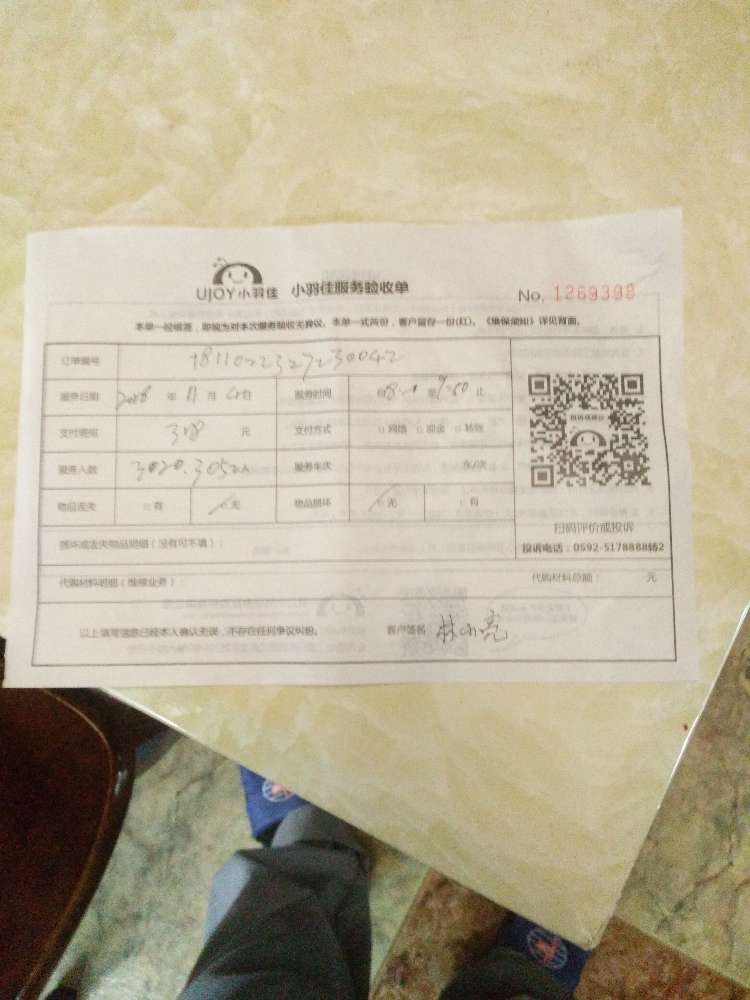 UJOY小羽佳 小羽佳服务验收单
No. 1269398
本单一经签署，即视为对本次服务验收无异议。本单一式两份，客户留存一份(红)。《维保须知》详见背面。
订单编号
服务日期 年 11 月 日 服务时间 自 至 止
支付费用 318 元 支付方式 □网络 □现金 □转账
服务人数 3020.3052人 服务车次 次/次
物品丢失 □有 □无 物品损坏 □无 □有
扫码评价或投诉
损坏或丢失物品明细（没有可不填）：
投诉电话：0592-5178888转2
代购材料明细（维修业务）： 代购材料总额： 元
以上填写信息已经本人确认无误，不存在任何争议纠纷。 客户签名 林小亮